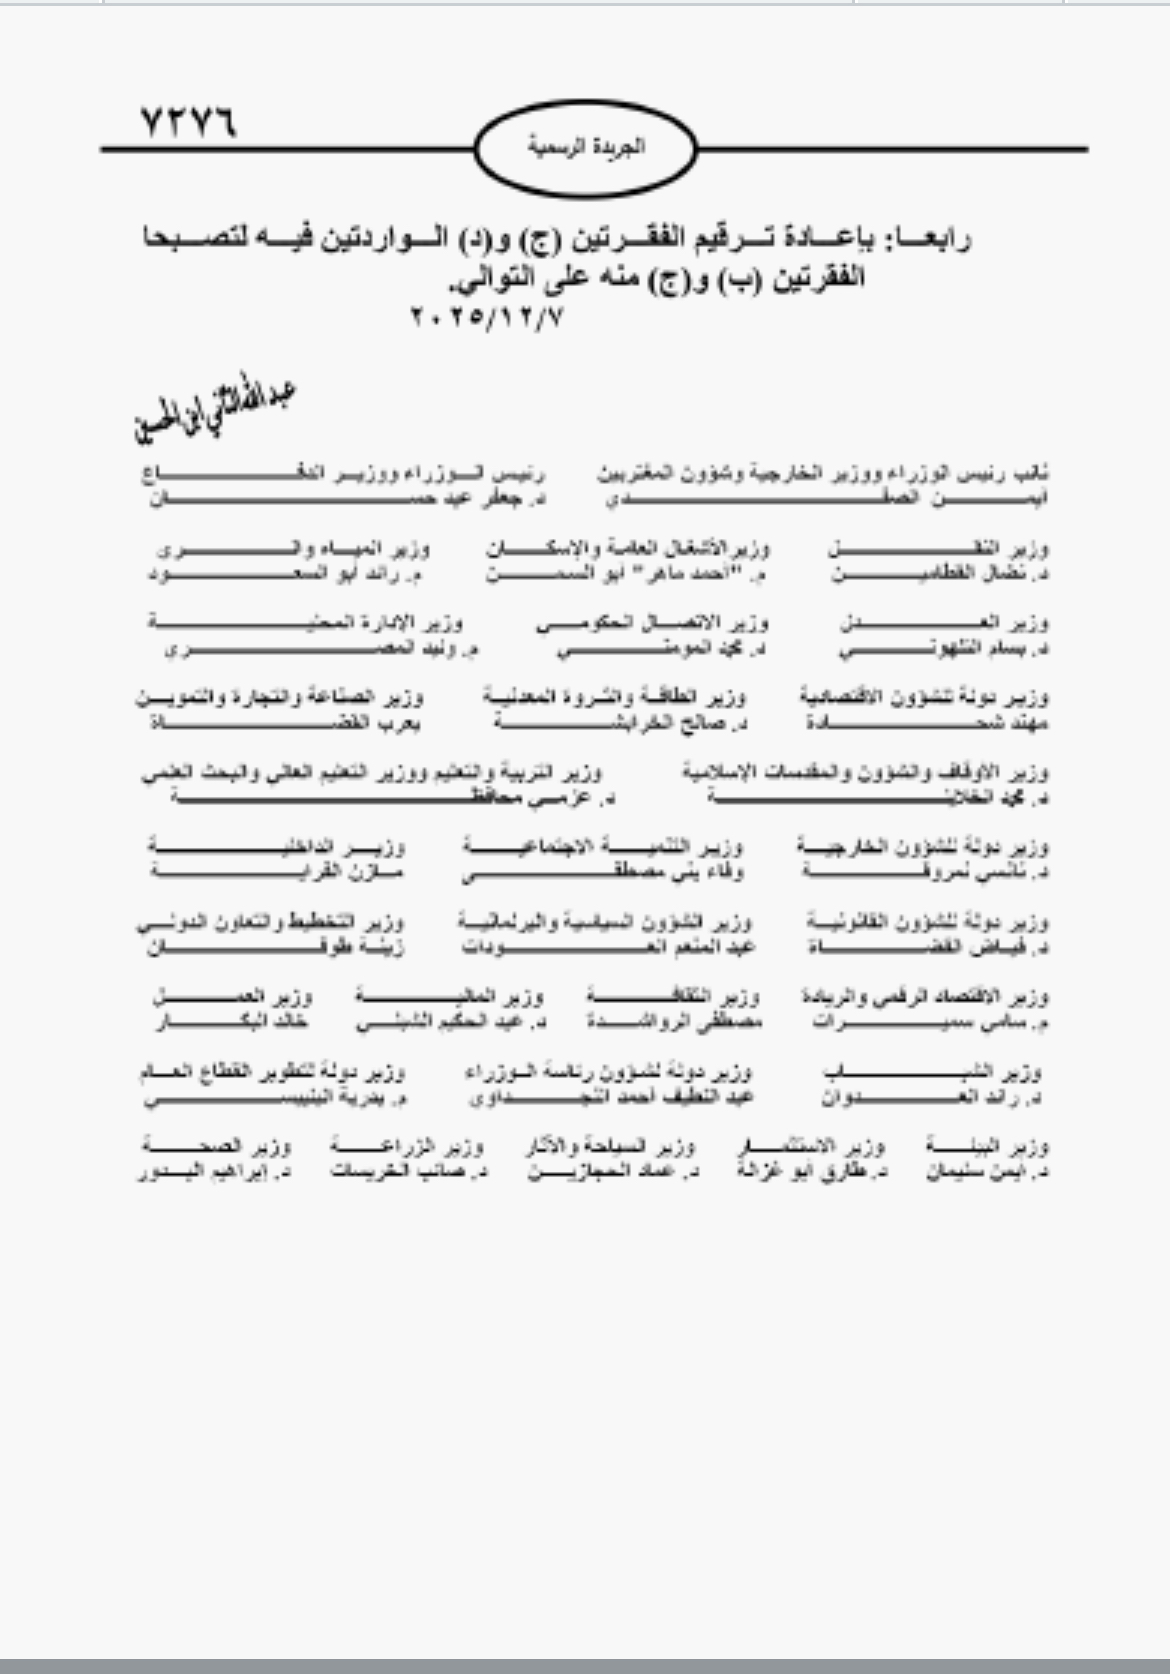 ٧٢٧٦
الجريدة الرسمية
رابعا: بإعادة ترقيم الفقرتين (ج) و(د) الواردتين فيه لتصبحا
الفقرتين (ب) و(ج) منه على التوالي.
٢٠٢٥/١٢/٧
عبد الله الثاني ابن الحسين
نائب رئيس الوزراء ووزير الخارجية وشؤون المغتربين رئيس الوزراء ووزير الدفاع
أيمن الصفدي د. جعفر عبد حسان
وزير النقل وزير الأشغال العامة والإسكان وزير المياه والري
د. نضال القطامين م. "أحمد ماهر" أبو السمن م. رائد أبو السعود
وزير العدل وزير الاتصال الحكومي وزير الإدارة المحلية
د. بسام التلهوني د. محمد المومني م. وليد المصري
وزير دولة للشؤون الاقتصادية وزير الطاقة والثروة المعدنية وزير الصناعة والتجارة والتموين
مهند شحادة د. صالح الخرابشة يعرب القضاة
وزير الأوقاف والشؤون والمقدسات الإسلامية وزير التربية والتعليم ووزير التعليم العالي والبحث العلمي
د. محمد الخلايلة د. عزمي محافظة
وزير دولة للشؤون الخارجية وزير التنمية الاجتماعية وزير الداخلية
د. نانسي نمروقة وفاء بني مصطفى مازن الفراية
وزير دولة للشؤون القانونية وزير الشؤون السياسية والبرلمانية وزير التخطيط والتعاون الدولي
د. فياض القضاة عبد المنعم العودات زينة طوقان
وزير الاقتصاد الرقمي والريادة وزير الثقافة وزير المالية وزير العمل
م. سامي سميرات مصطفى الرواشدة د. عبد الحكيم الشبلي خالد البكار
وزير الشباب وزير دولة لشؤون رئاسة الوزراء وزير دولة لتطوير القطاع العام
د. رائد العدوان عبد اللطيف أحمد النجداوي م. بدرية البلبيسي
وزير البيئة وزير الاستثمار وزير السياحة والآثار وزير الزراعة وزير الصحة
د. أيمن سليمان د. طارق أبو غزالة د. عماد الحجازين د. صائب الخريسات د. إبراهيم البدور